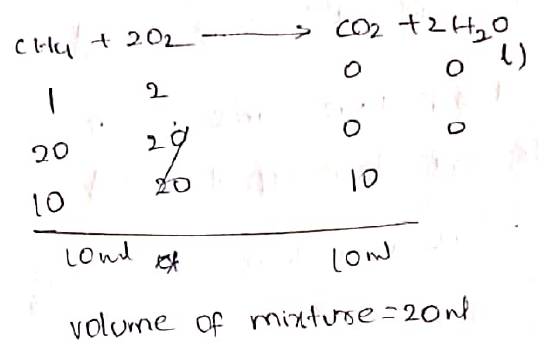 CH4 + 2O2 → CO2 + 2H2O
1 2 0 0 l)
20 20 0 0
10 20 10
10ml 10ml
volume of mixture = 20ml